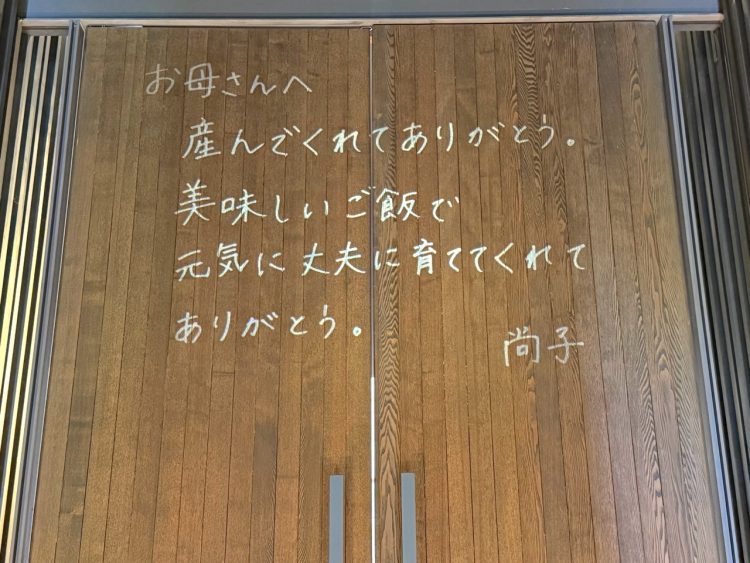 お母さんへ
産んでくれてありがとう。
美味しいご飯で
元気に丈夫に育ててくれて
ありがとう。
尚子